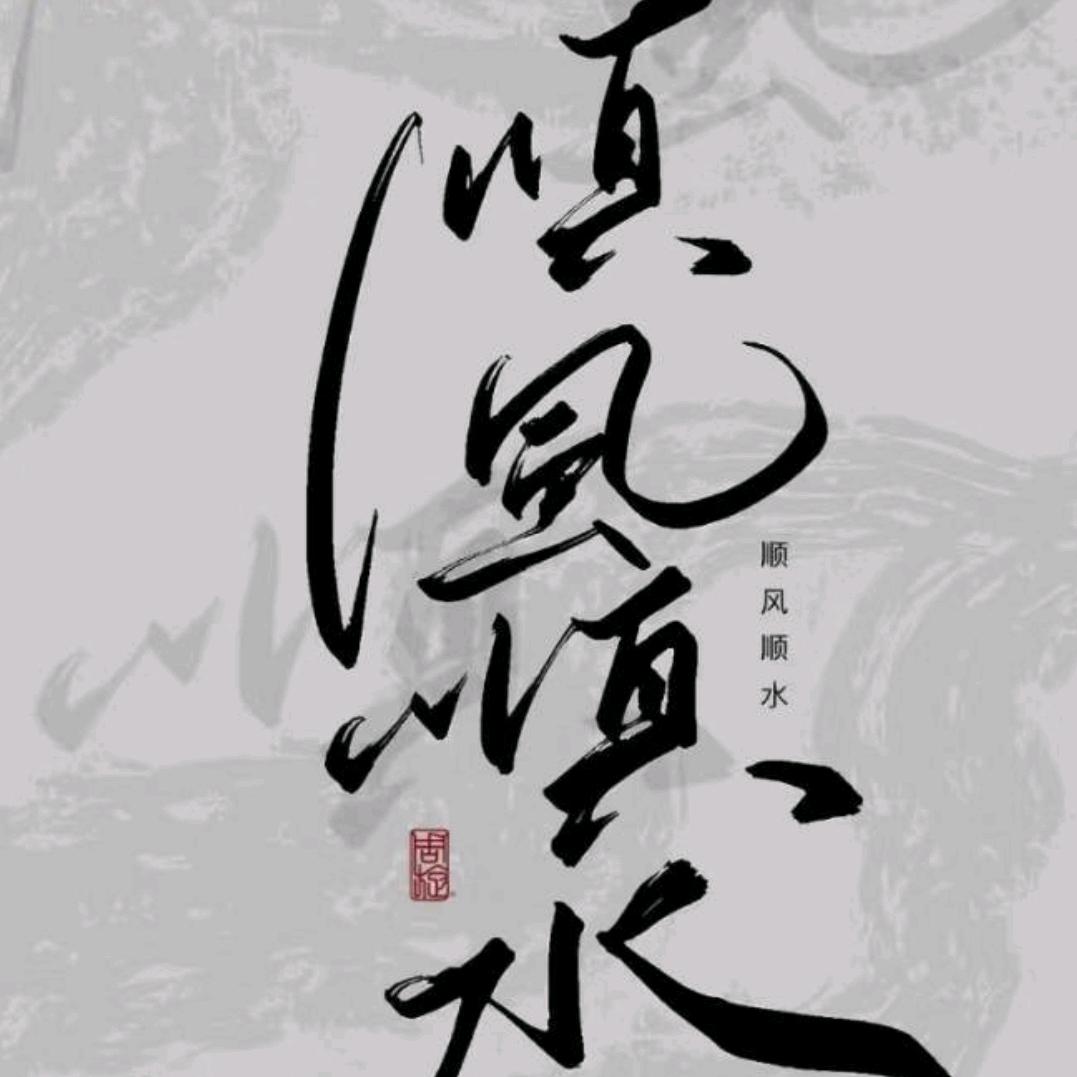 順風順水
顺风顺水